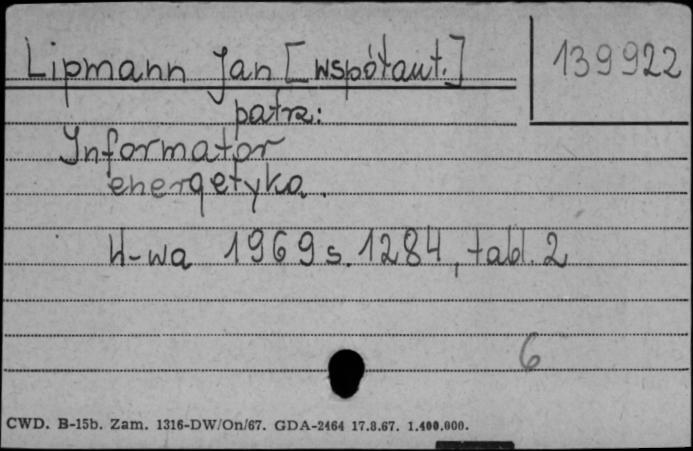 Lipmann Jan [współaut.]
139922
patrz:
Informator
energetyka.
W-wa 1969 s. 1284, tabl. 2
6
CWD. B-15b. Zam. 1316-DW/On/67. GDA-2464 17.8.67. 1.400.000.